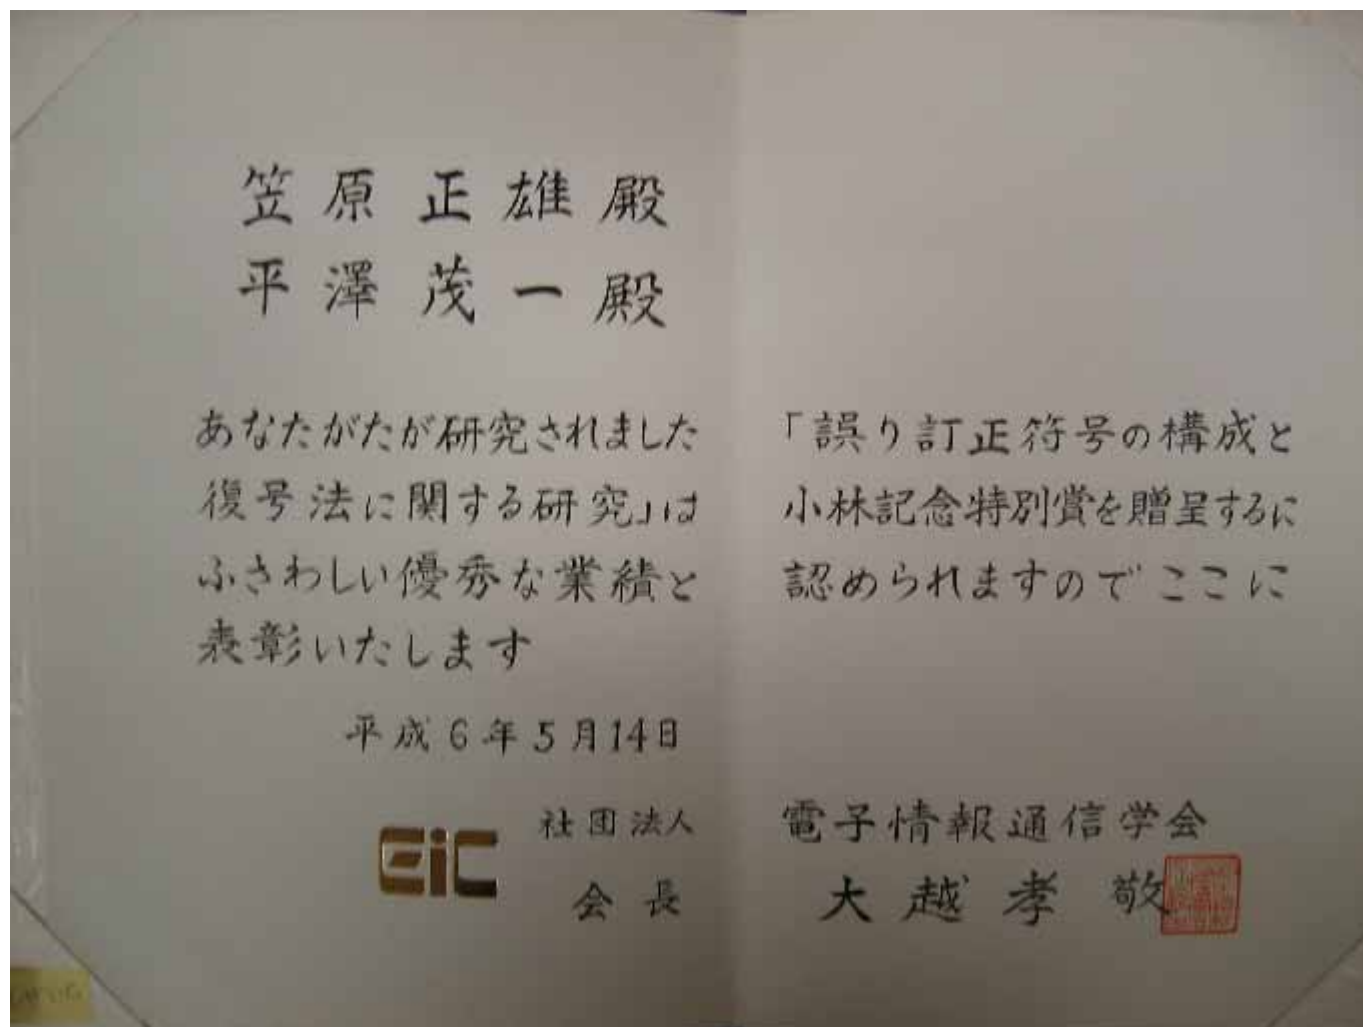 笠原正雄殿
平澤茂一殿
あなたがたが研究されました「誤り訂正符号の構成と
復号法に関する研究」は小林記念特別賞を贈呈するに
ふさわしい優秀な業績と認められますのでここに
表彰いたします
平成6年5月14日
EiC 社団法人 電子情報通信学会
会長 大越孝敬